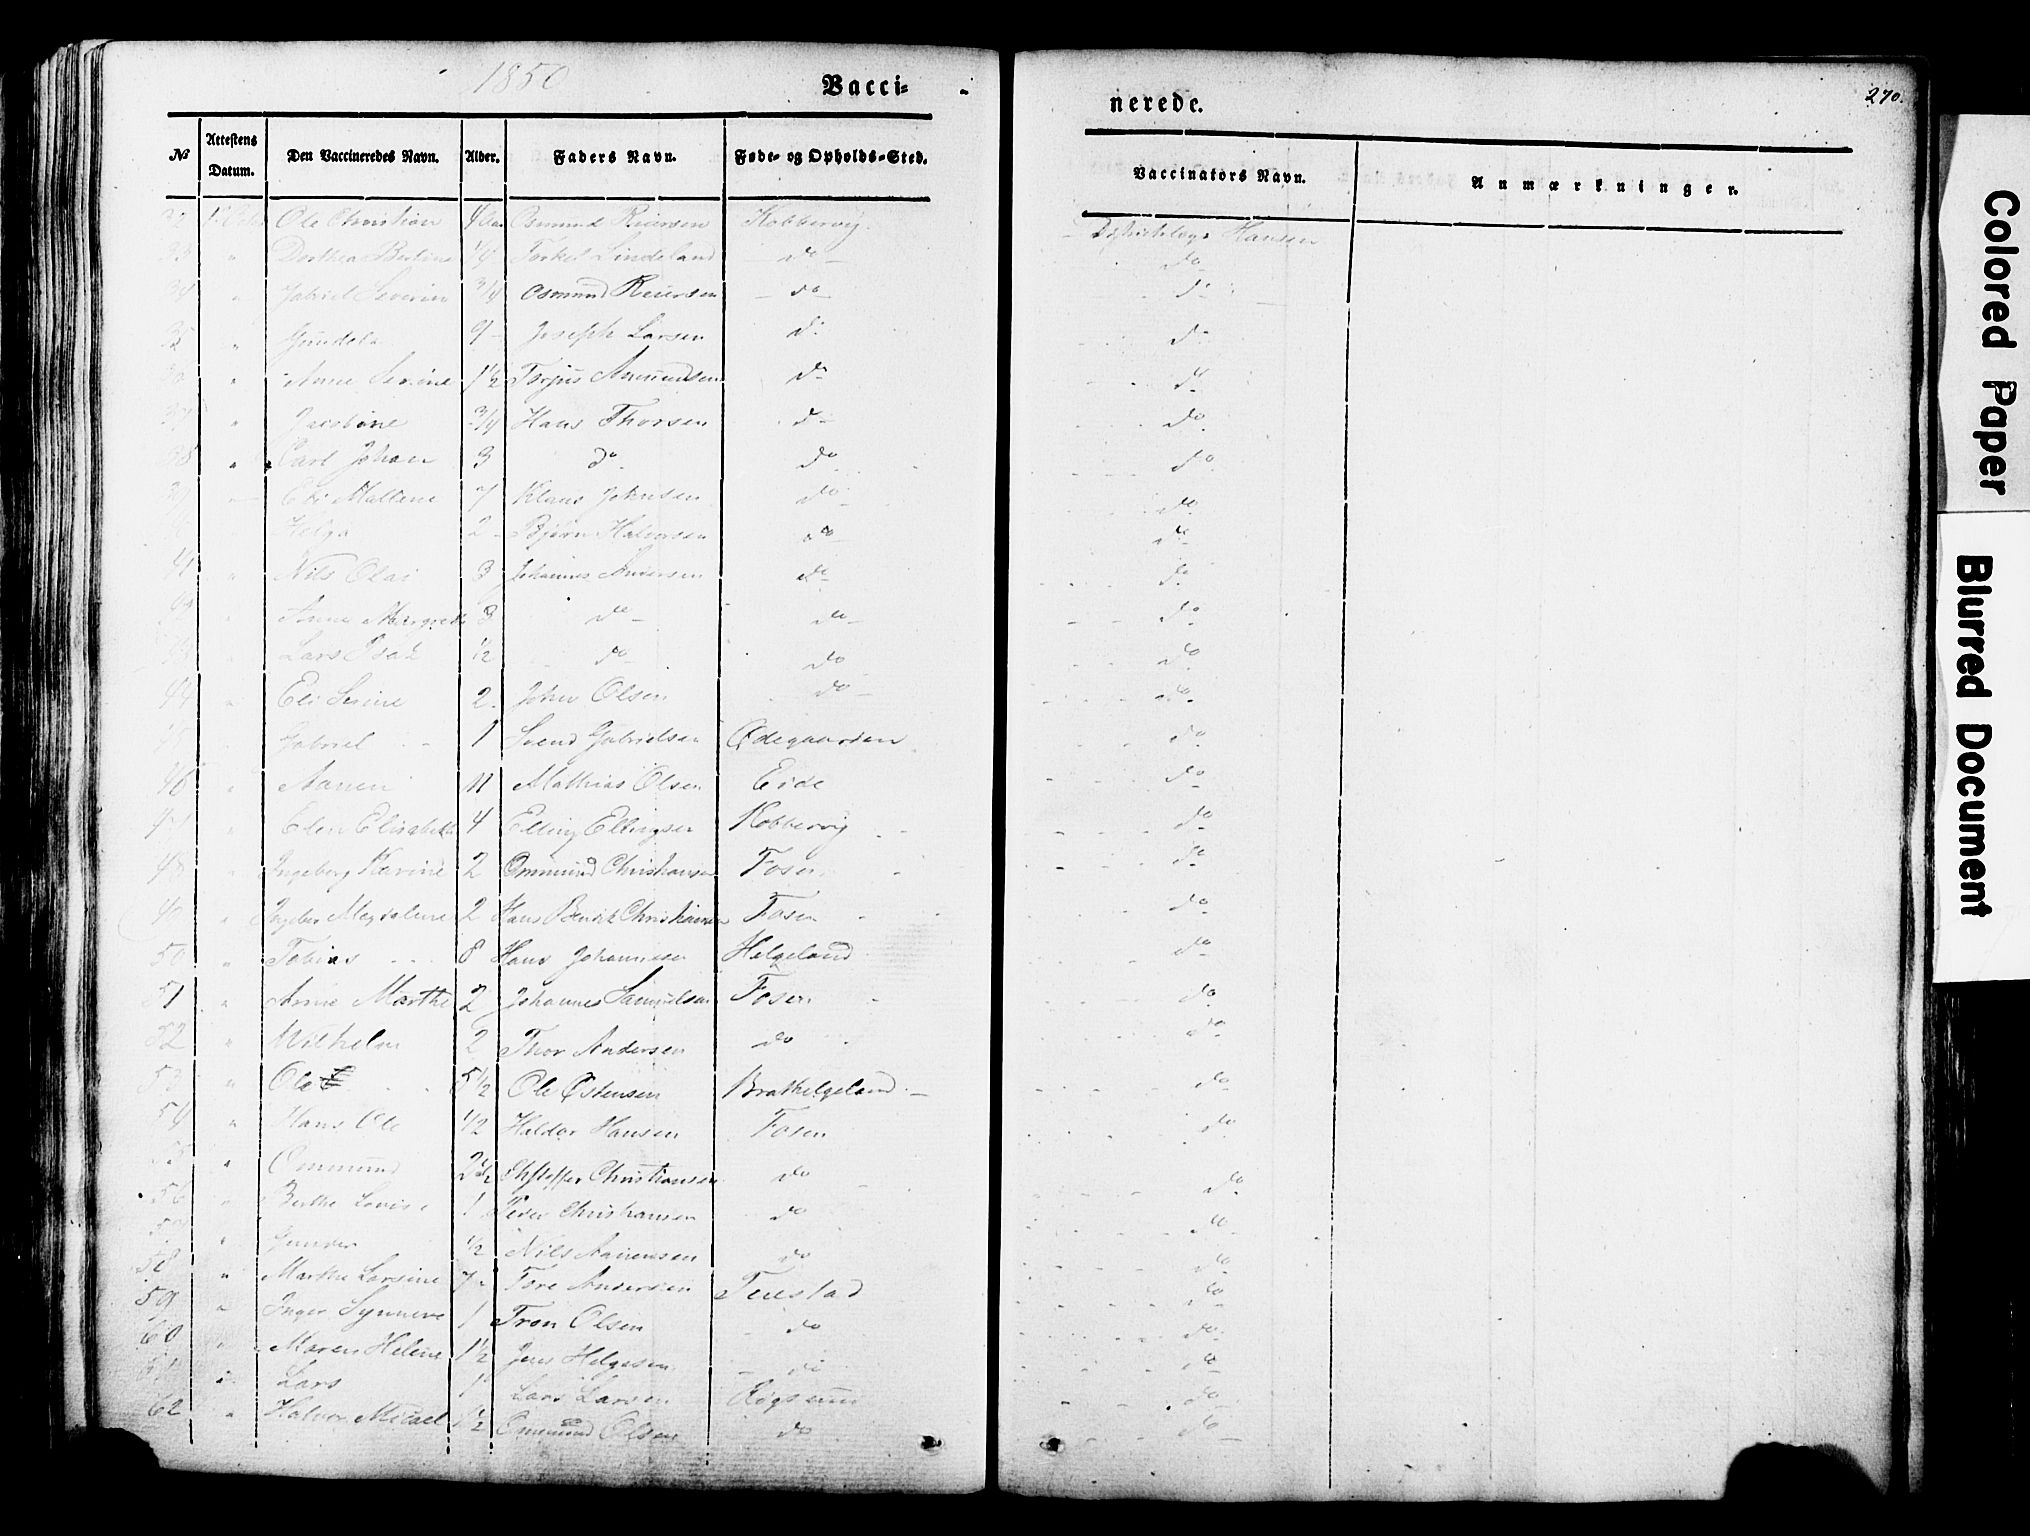 1850
Vacci-
nerede.
270.
No
Attestens Datum.
Den Vaccineredes Navn.
Alder.
Faders Navn.
Føde- og Opholds-Sted.
Vaccinators Navn.
Anmærkninger.
32 Ole Christian 4 Osmund Reiersen Kobbervig Districtslæge Hansen
33 " Dorthea Bertine 1/4 Torkel Lindeland do do
34 " Gabriel Severin 3/4 Osmund Reiersen do do
35 " Gundela 9 Joseph Larsen do do
36 " Anne Serine 1 1/2 Torjus Amundsen do do
37 " Jacobine 3/4 Hans Thorsen do do
38 " Carl Johan 3 do do do
39 Eli Maltene 7 Klaus Johnsen do do
Helga 2 Bjørn Halvorsen do do
41 " Nils Olai 3 Johannes Andersen do do
42 " Anne Margrete 8 do do do
43 " Lars Isak 1/2 do do do
44 " Eli Serine 2 John Olsen do do
45 Gabriel 1 Svend Gabrielsen Ødegaarden do
46 " Aanen 11 Mathias Olsen Eide do
47 " Elen Elisabeth 4 Elling Ellingsen Kobbervig do
48 " Ingeborg Karine 2 Ommund Christiansen Fosen do
49 " Ingebor Magdalene 2 Hans Benrik Christiansen Fosen do
50 " Tobias 8 Hans Johannesen Helgeland do
51 " Anne Marthe 2 Johannes Samuelsen Fosen do
52 " Wilhelm 2 Thor Andersen do do
53 " Ole 5 1/2 Ole Østensen Brathelgeland do
54 " Hans Ole 1/2 Haldor Hansen Fosen do
55 " Ommund 2 1/2 Christiansen do do
56 " Berthe Lovise 1 Peder Christiansen do do
57 " Gunder 1/2 Nils Aanensen do do
58 " Marthe Larsine 7 Tore Andersen Teiestad do
59 " Inger Synneve 1 Tron Olsen do do
60 " Maren Helene 1 1/2 Jens Helgesen do do
61 " Lars 1 Lars Larsen do
62 " Halvor Micael 1 1/2 Ommund Olsen do do
Colored Paper
Blurred Document